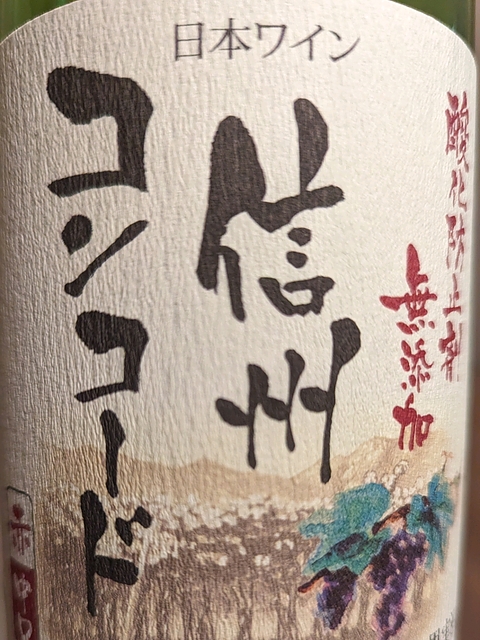 日本ワイン
酸化防止剤
無添加
信州
コンコード